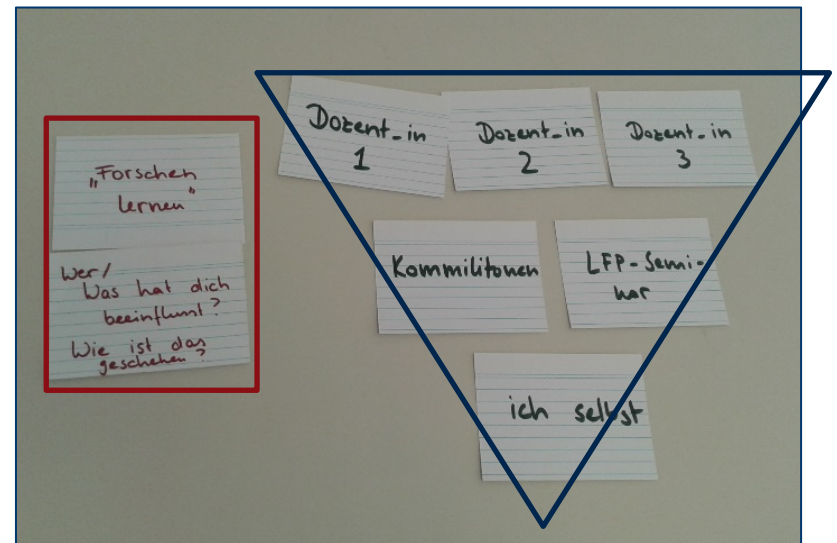 „Forschen
lernen"
Wer/
Was hat dich
beeinflusst?
Wie ist das
geschehen?
Dozent_in
1
Dozent_in
2
Dozent_in
3
Kommilitonen
LFP-Semi-
nar
ich selbst